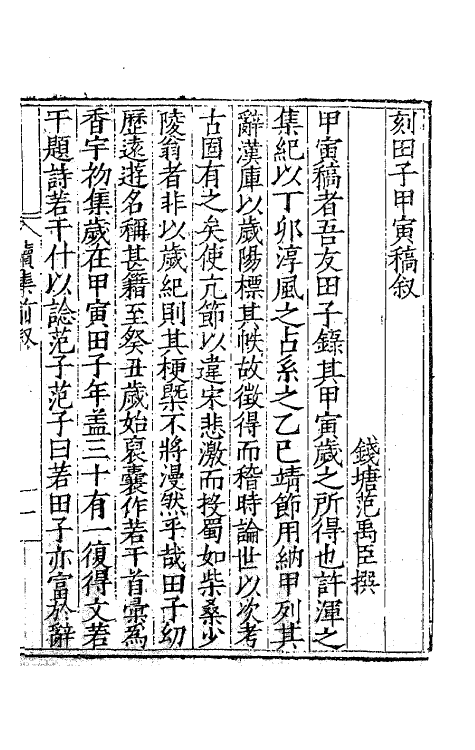 刻田子甲寅稿叙
錢塘范禹臣撰
甲寅稿者吾友田子錄其甲寅歲之所得也許渾之
集紀以丁卯淳風之占系之乙巳靖節用納甲列其
辭漢庫以歲陽標其帙故徵得而稽時論世以次考
古固有之矣使亢節以違宋悲激而投蜀如柴桑少
陵翁者非以歲紀則其梗槩不將漫然乎哉田子幼
歷遠遊名稱甚籍至癸丑歲始裒囊作若干首彚為
香宇初集歲在甲寅田子年盖三十有一復得文若
干題詩若干什以諗范子范子曰若田子亦富於辭
續集前叙
一